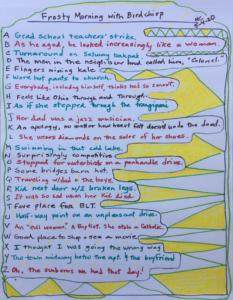 Frosty Morning with Birdchirp
A Grad School teachers' strike.
B As he aged, he looked increasingly like a woman.
C Turnaround on Satunay
D The men in the neighbour band called him, "Colonel."
E Fingers mixing kale.
F Wore hot pants to church.
G Everybody, including himself, thinks hat so smart.
H Feels like Ohio through and through.
I As if she stepped through the frangipani
J Her dad was a jazz musician.
K An apology, no matter how heart felt doesn't undo the dead.
L She wears diamonds on the soles of her shoes.
M Swimming in that cold lake.
N Surprisingly competitive.
O Stopped for waterbirds on a panhandle drive.
P Some bridges burn hot.
Q Traveling w/dad & the boys.
R Kid next door w/2 broken legs.
S It was so sad when her kid died.
T Fave place for BLT.
U Half-way point on an unpleasant drive.
V An "evil woman." A Baptist. She stole a Catholic.
W Good place to shop & see a movie.
X I thought I was going the wrong way
Y The town midway betw the apt. & the boyfriend
Z Oh, the sunburns we had that day!